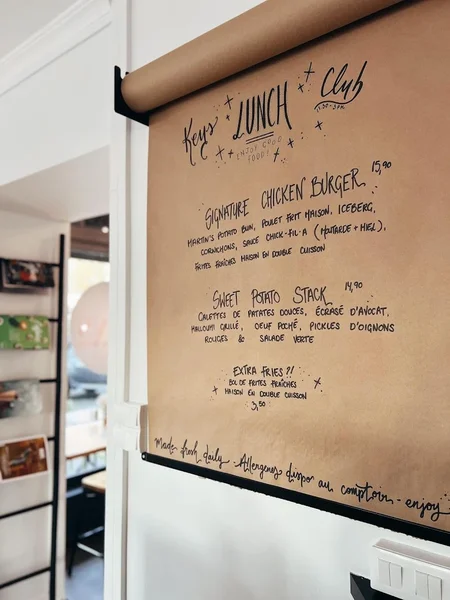 Keys LUNCH Club
ENJOY GOOD FOOD!
SIGNATURE CHICKEN BURGER 15,90
MARTIN'S POTATO BUN, POULET FRIT MAISON, ICEBERG,
CORNICHONS, SAUCE CHICK-FIL-A (MOUTARDE + MIEL),
FRITES FRAÎCHES MAISON EN DOUBLE CUISSON
SWEET POTATO STACK 14,90
GALETTES DE PATATES DOUCES, ÉCRASÉ D'AVOCAT,
HALLOUMI GRILLÉ, OEUF POCHÉ, PICKLES D'OIGNONS
ROUGES & SALADE VERTE
EXTRA FRIES ?!
BOL DE FRITES FRAÎCHES
MAISON EN DOUBLE CUISSON
3,50
Made fresh daily - Allergenes dispo au comptoir - enjoy